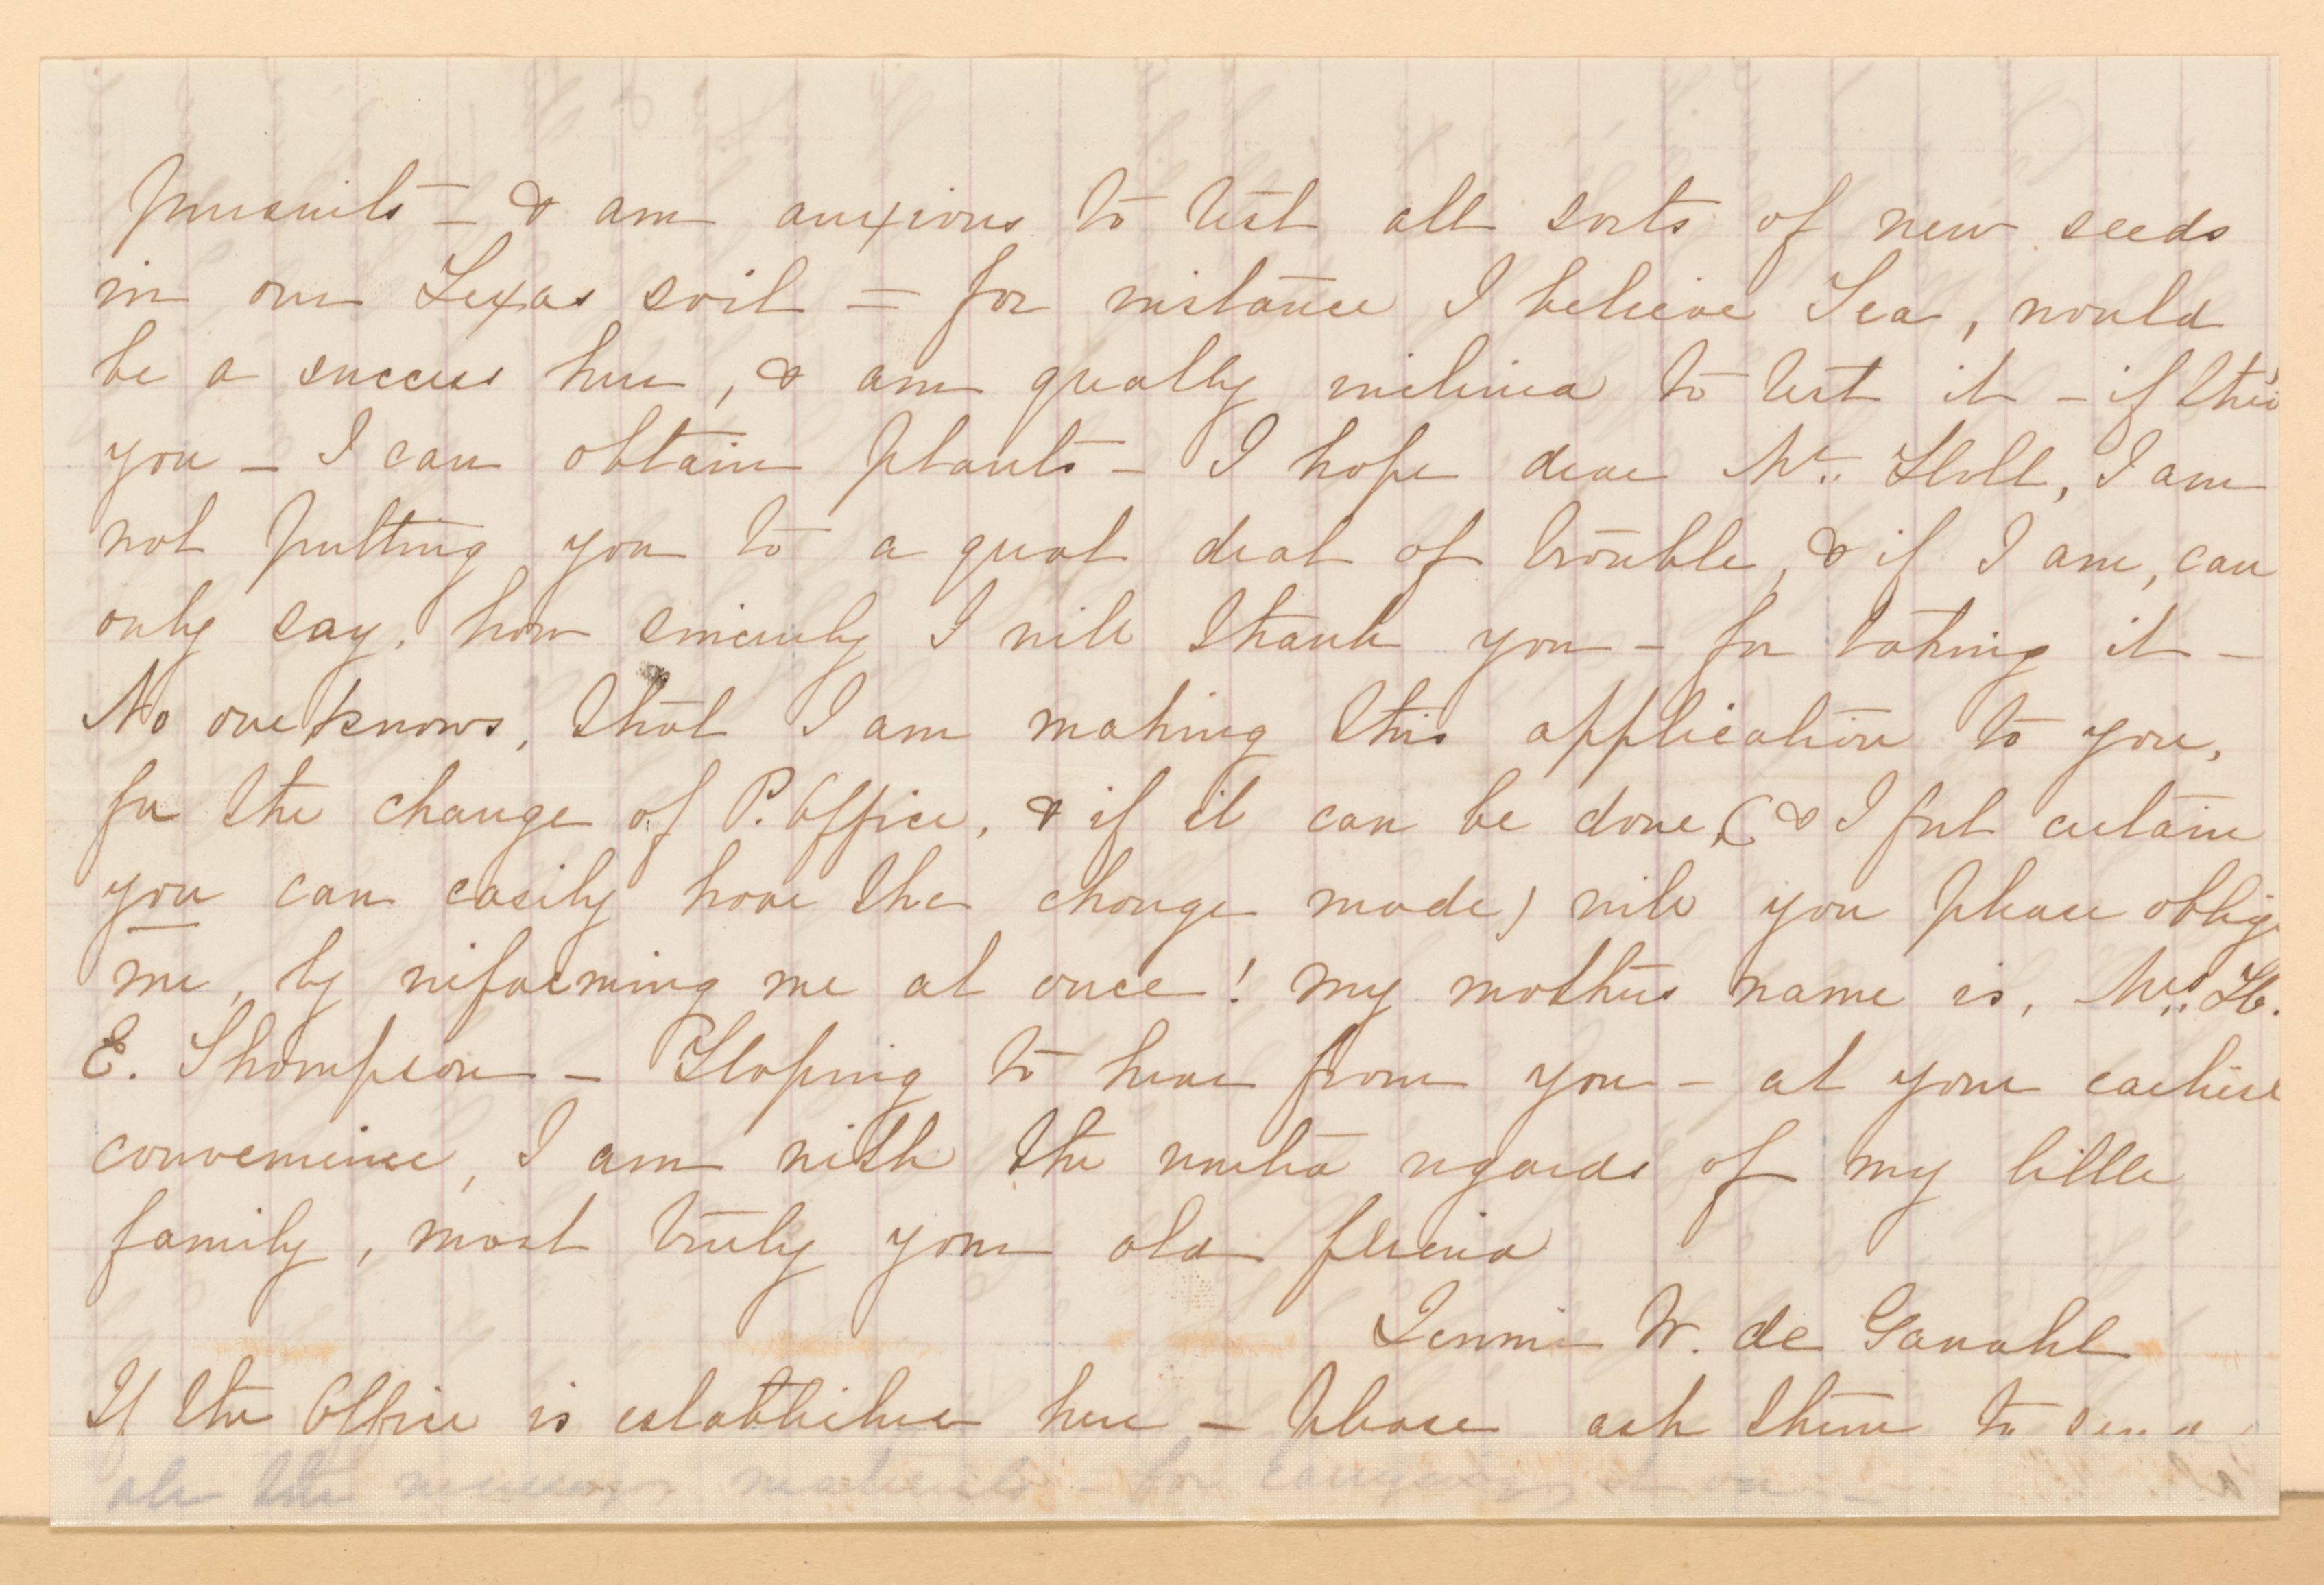 pursuits - & am anxious to test all sorts of new seeds
in our Texas soil = for instance I believe Tea, would
be a success here, & am greatly inclined to test it - if thro'
you - I can obtain plants - I hope dear Mr. Holl, I am
not putting you to a great deal of trouble, & if I am, can
only say, how sincerely I will thank you - for taking it -
No one knows, that I am making this application to you,
for the change of P. Office, & if it can be done, (& I feel certain
you can easily have the change made) will you please oblige
me, by informing me at once! My mothers name is, Mrs. H.
E. Thompson - Hoping to hear from you - at your earliest
convenience, I am with the united regards of my little
family, most truly your old friend
Jennie W. de Ganahl
If the Office is established here - please ask them to send
all the necessary materials - for carrying it on -